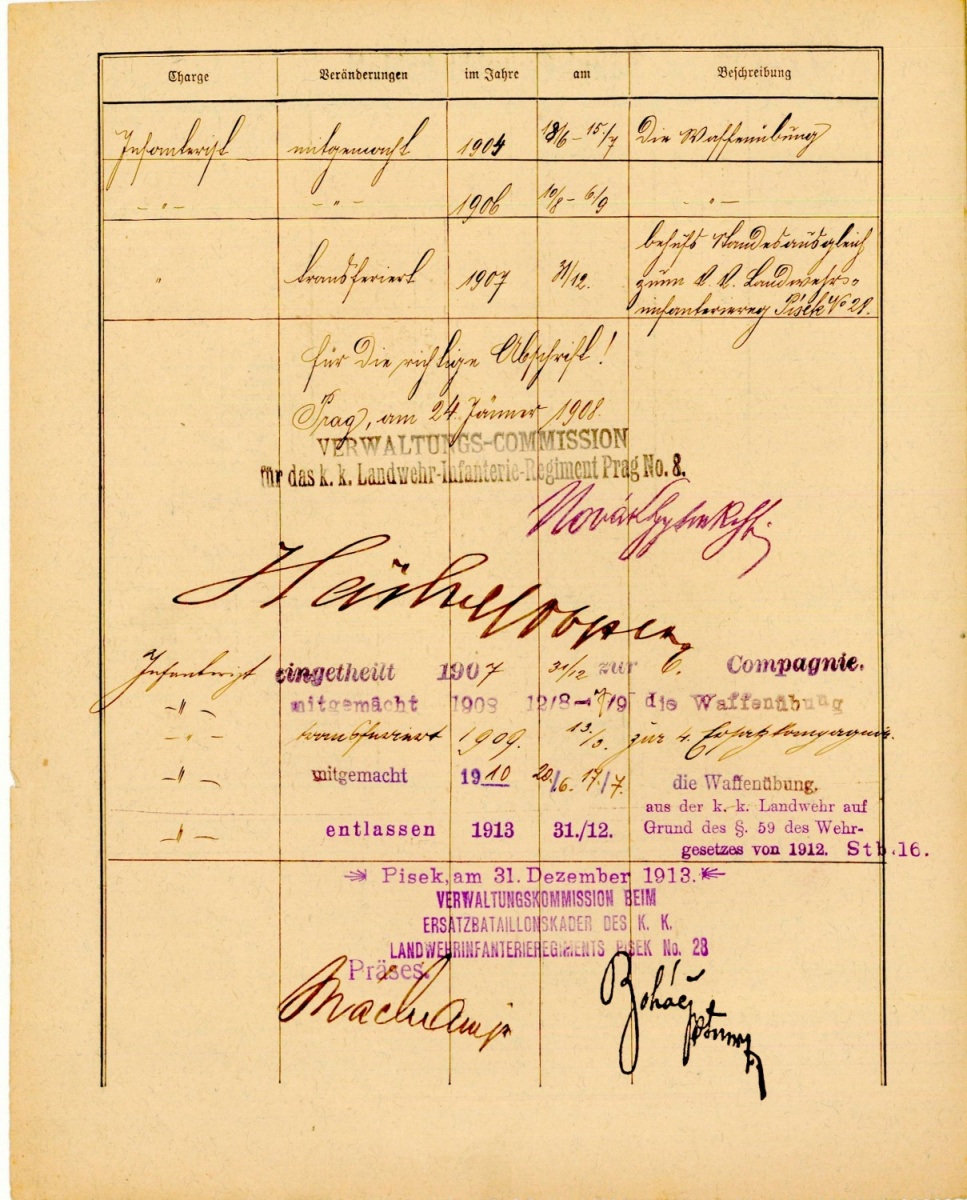 Charge Veränderungen im Jahre am Beschreibung
Infanterist mitgemacht 1904 18/6 - 15/7 die Waffenübung
- " - - " - 1906 10/8 - 6/9 - " -
behufs Standesausgleich
" transferiert 1907 31/12. zum k. k. Landwehr-
infanteriereg Pisek No 28.
für die richtige Abschrift!
Prag, am 24. Jänner 1908.
VERWALTUNGS-COMMISSION
für das k. k. Landwehr-Infanterie-Regiment Prag No. 8.
Infanterist eingetheilt 1907 31/12 zur 6. Compagnie.
- " - mitgemacht 1908 12/8 - 7/9 die Waffenübung
- " - transferiert 1909. 13./3. zur 4. Ersatzkompagnie.
- " - mitgemacht 1910 20./6. 17./7. die Waffenübung.
aus der k. k. Landwehr auf
- " - entlassen 1913 31./12. Grund des §. 59 des Wehr-
gesetzes von 1912. Stb.16.
Pisek, am 31. Dezember 1913.
VERWALTUNGSKOMMISSION BEIM
ERSATZBATAILLONSKADER DES K. K.
LANDWEHRINFANTERIEREGIMENTS PISEK No. 28
Präses.